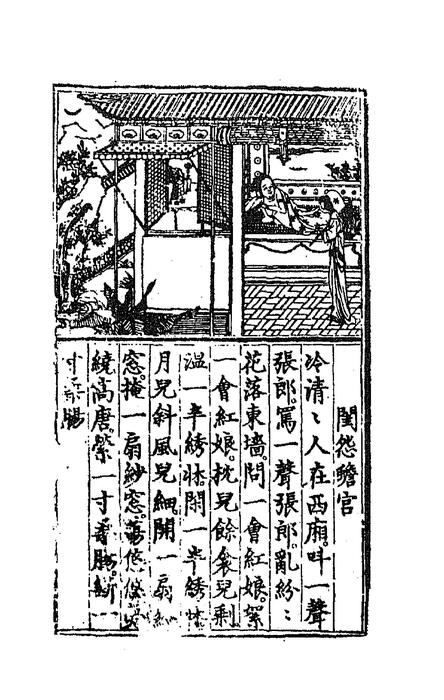 閨怨蟾宮
冷清〻人在西廂。叫一聲
張郎。罵一聲張郎。亂紛〻
花落東墙。問一會紅娘。絮
一會紅娘。枕兒餘衾兒剩
温一半綉牀閑一半綉牀
月兒斜風兒細開一扇紗
窓。掩一扇紗窓。蕩悠悠夢
繞高唐。縈一寸腸。斷一
寸腸